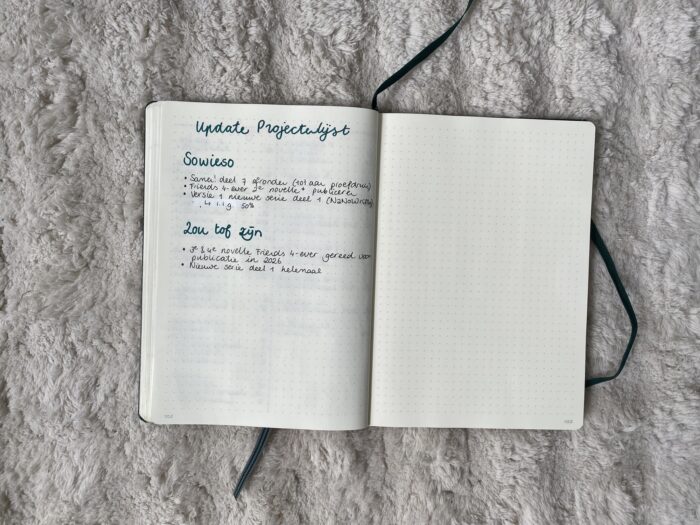 Update Projectenlijst
Sowieso
• Samen! deel 7 afronden (tot aan proefdruk)
• Friends 4-ever 2e novelle publiceren
• Versie 1 nieuwe serie deel 1 (NaNoWriMo)
50%
Zou tof zijn
• 3e & 4e novelle Friends 4-ever gereed voor
publicatie in 2026
• Nieuwe serie deel 1 helemaal